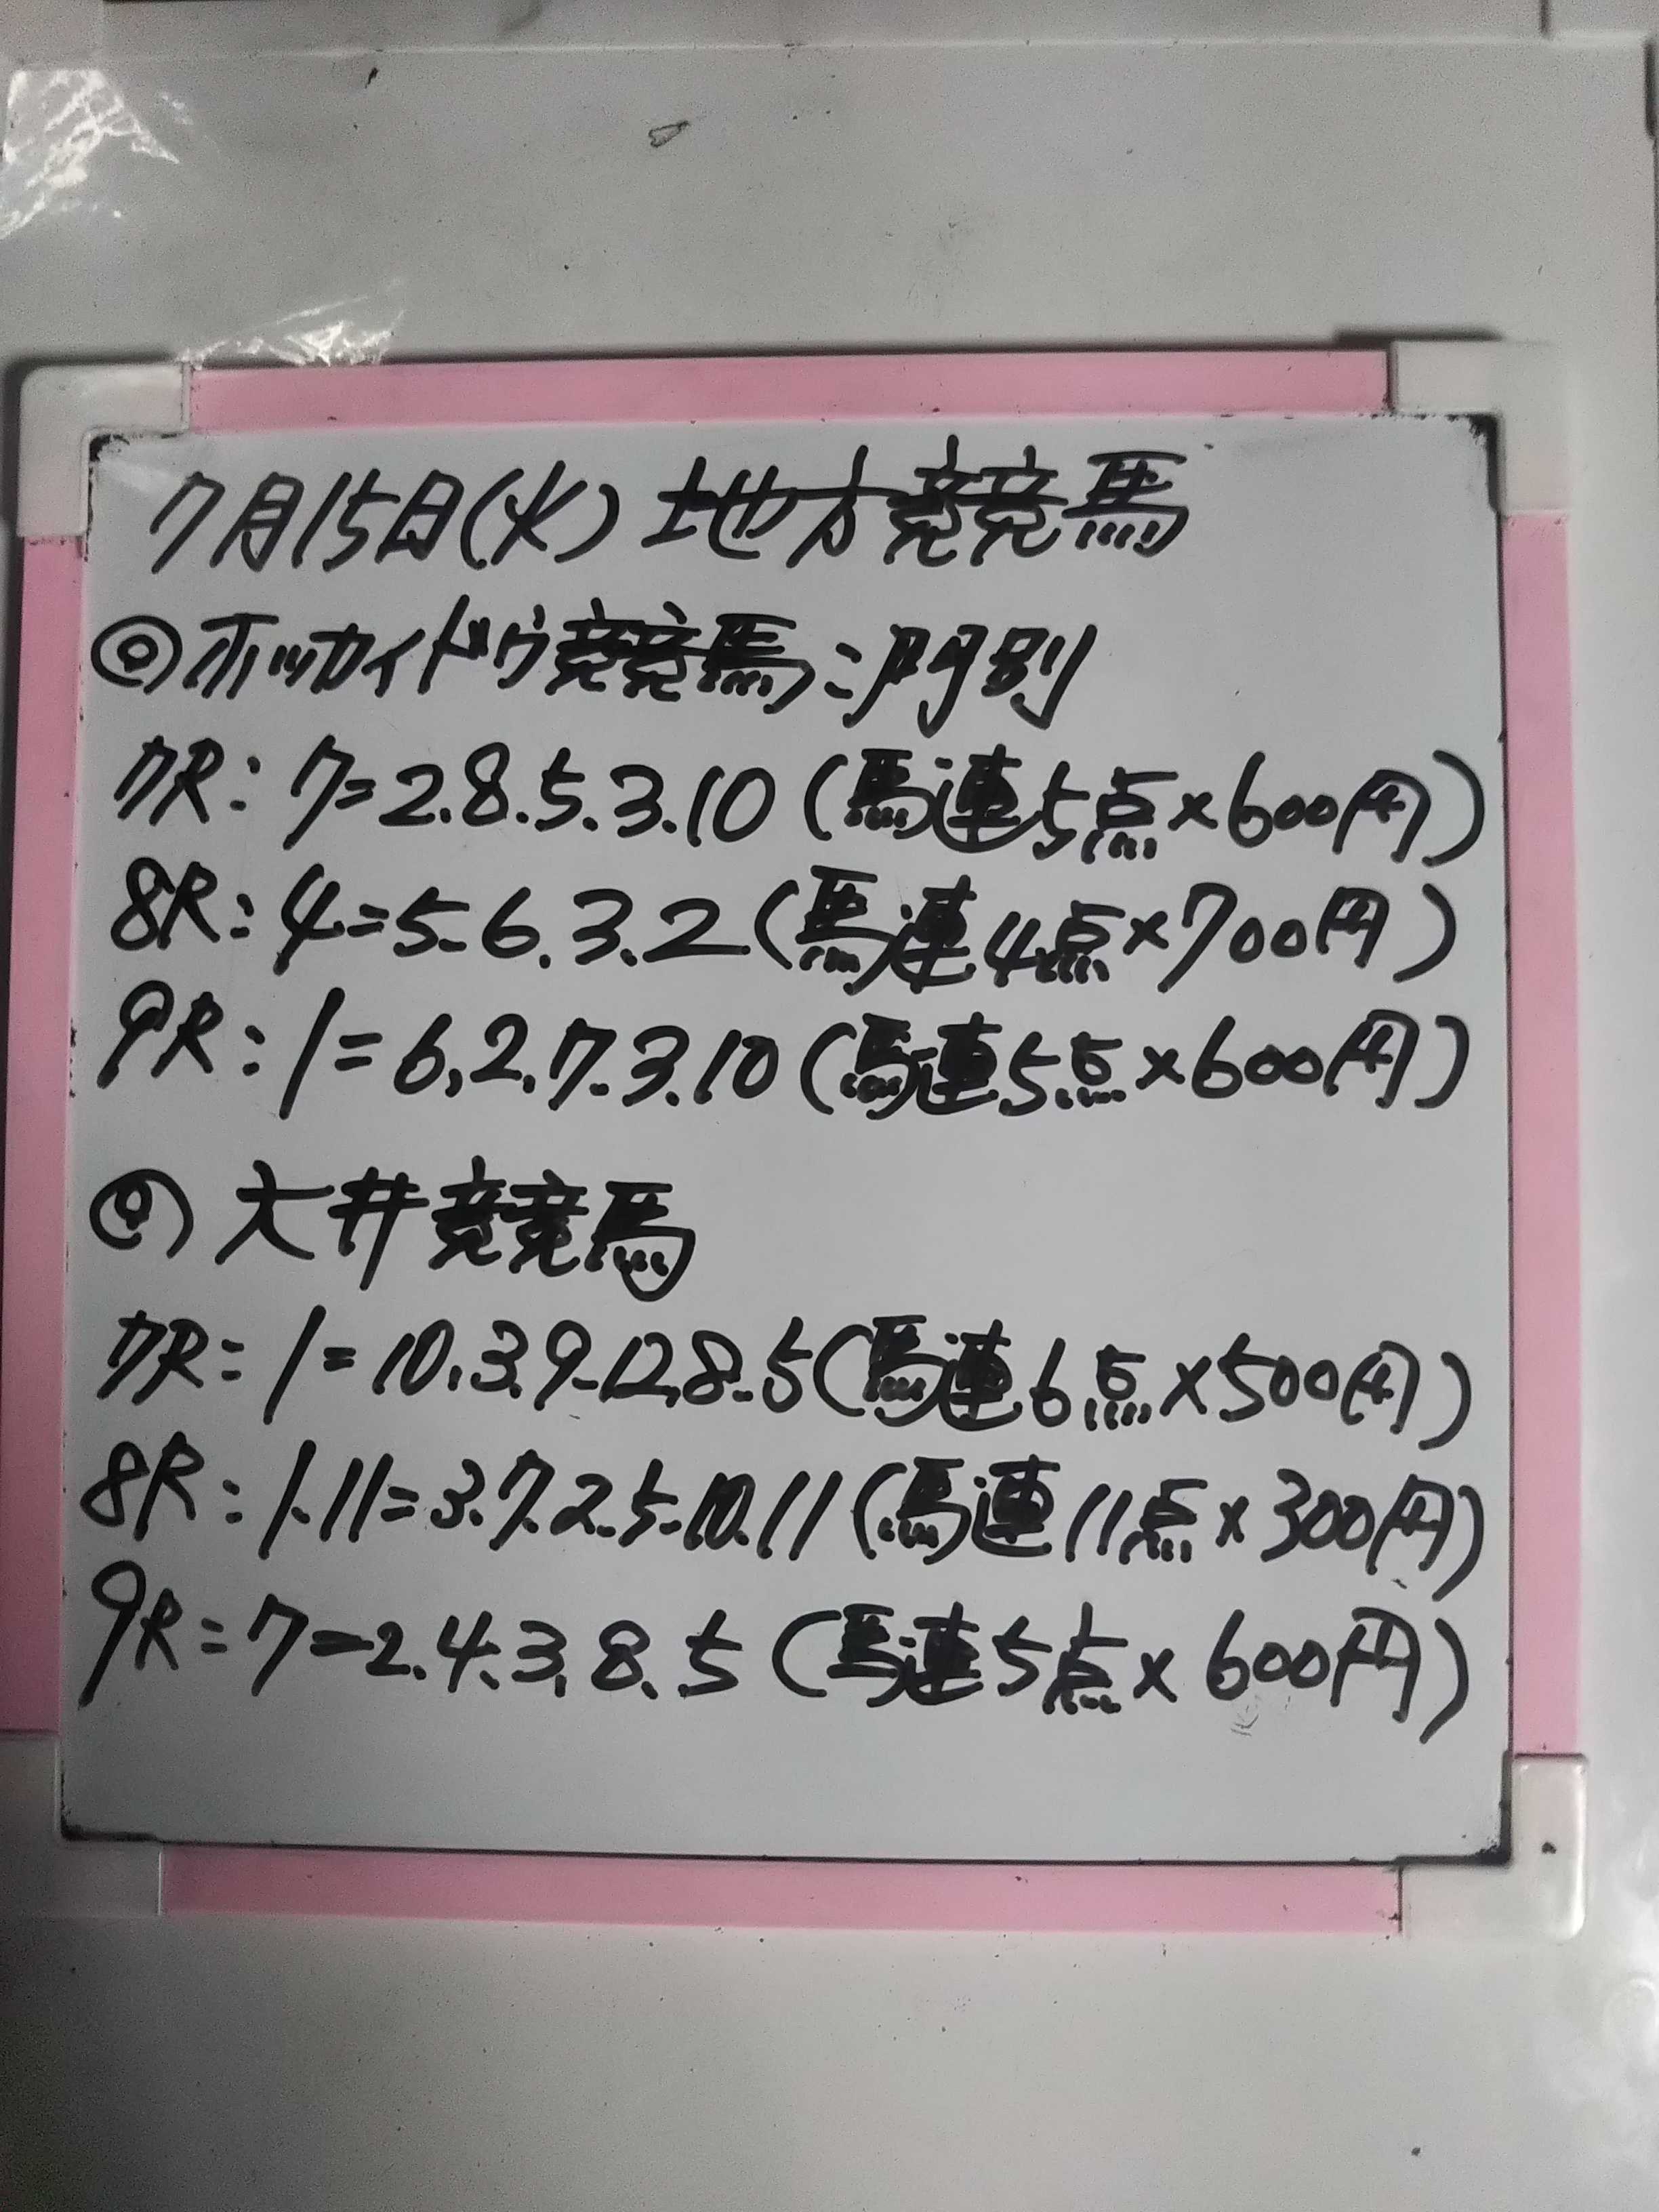 7月15日(火)地方競馬
◎ホッカイドウ競馬:門別
7R:7=2.8.5.3.10(馬連5点×600円)
8R:4=5.6.3.2(馬連4点×700円)
9R:1=6.2.7.3.10(馬連5点×600円)
◎大井競馬
7R:1=10.3.9.12.8.5(馬連6点×500円)
8R:1.11=3.7.2.5.10.11(馬連11点×300円)
9R:7=2.4.3.8.5(馬連5点×600円)